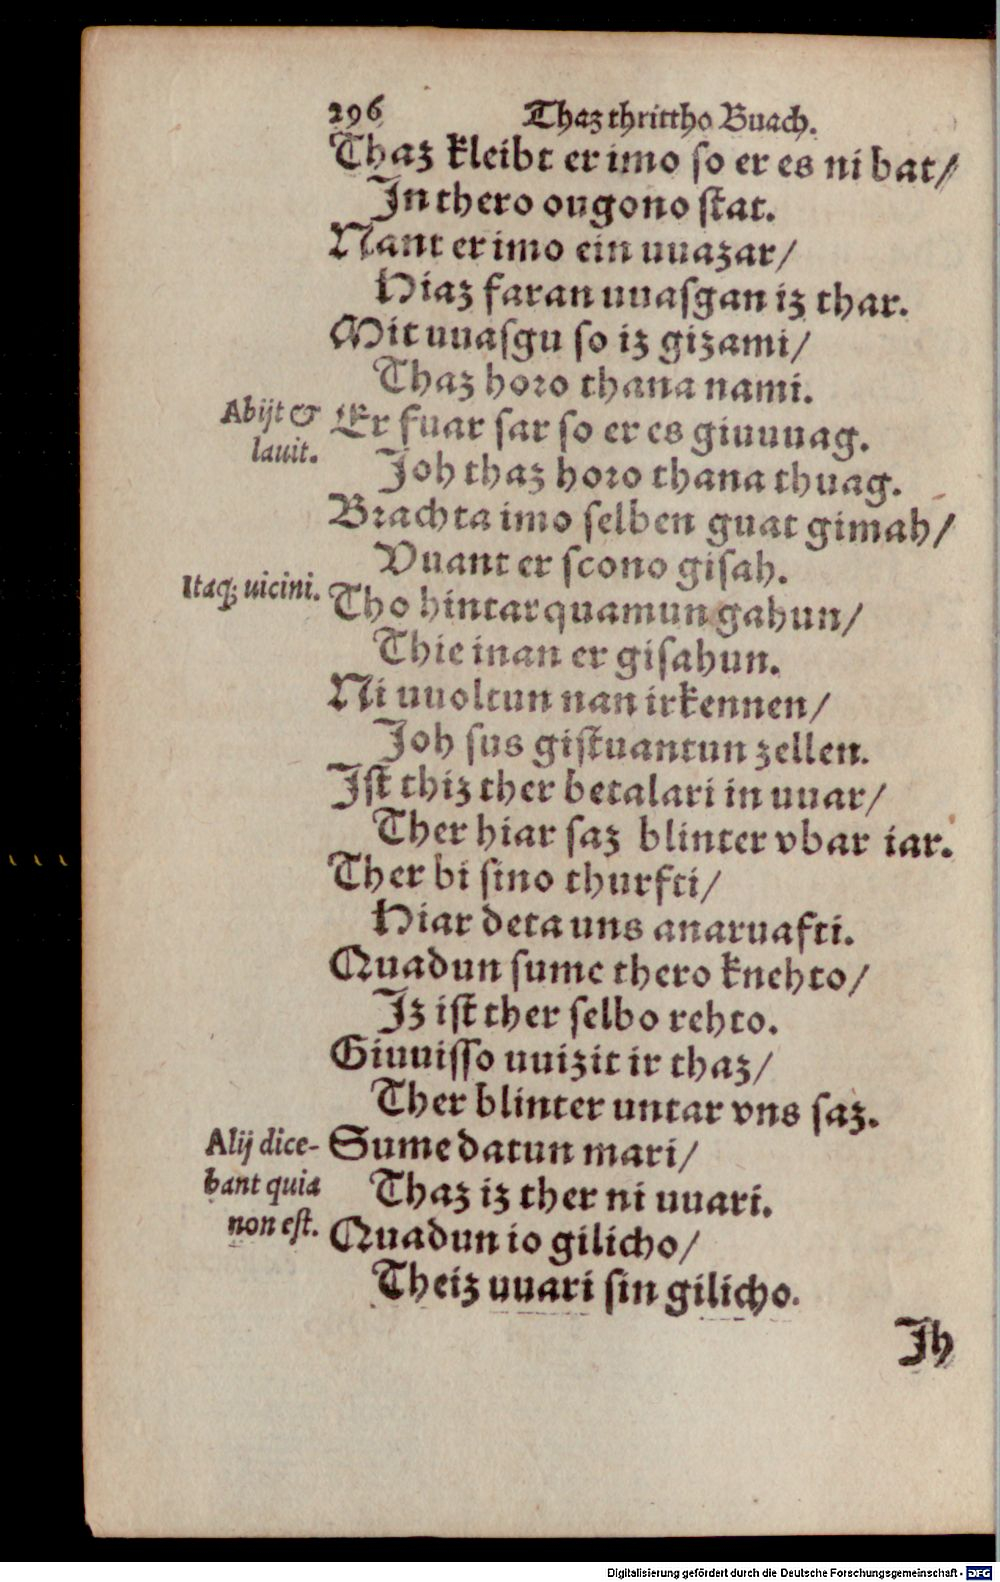 296 Thaz thrittho Buach.
Thaz kleibt er imo so er es ni bat/
In thero ougono stat.
Nant er imo ein uuazar/
Hiaz faran uuasgan iz thar.
Mit uuasgu so iz gizami/
Thaz horo thana nami.
Abijt &
lauit.
Er fuar sar so er es giuuuag.
Joh thaz horo thana thuag.
Brachta imo selben guat gimah/
Vuant er scono gisah.
Itaq; uicini.
Tho hintarquamun gahun/
Thie inan er gisahun.
Ni uuoltun nan irkennen/
Joh sus gistuantun zellen.
Ist thiz ther betalari in uuar/
Ther hiar saz blinter vbar iar.
Ther bi sino thurfti/
Hiar deta uns anaruafti.
Quadun sume thero knehto/
Iz ist ther selbo rehto.
Giuuisso uuizit ir thaz/
Ther blinter untar vns saz.
Alij dice-
bant quia
non est.
Sume datun mari/
Thaz iz ther ni uuari.
Quadun io gilicho/
Theiz uuari sin gilicho.
Ih
Digitalisierung gefördert durch die Deutsche Forschungsgemeinschaft - DFG